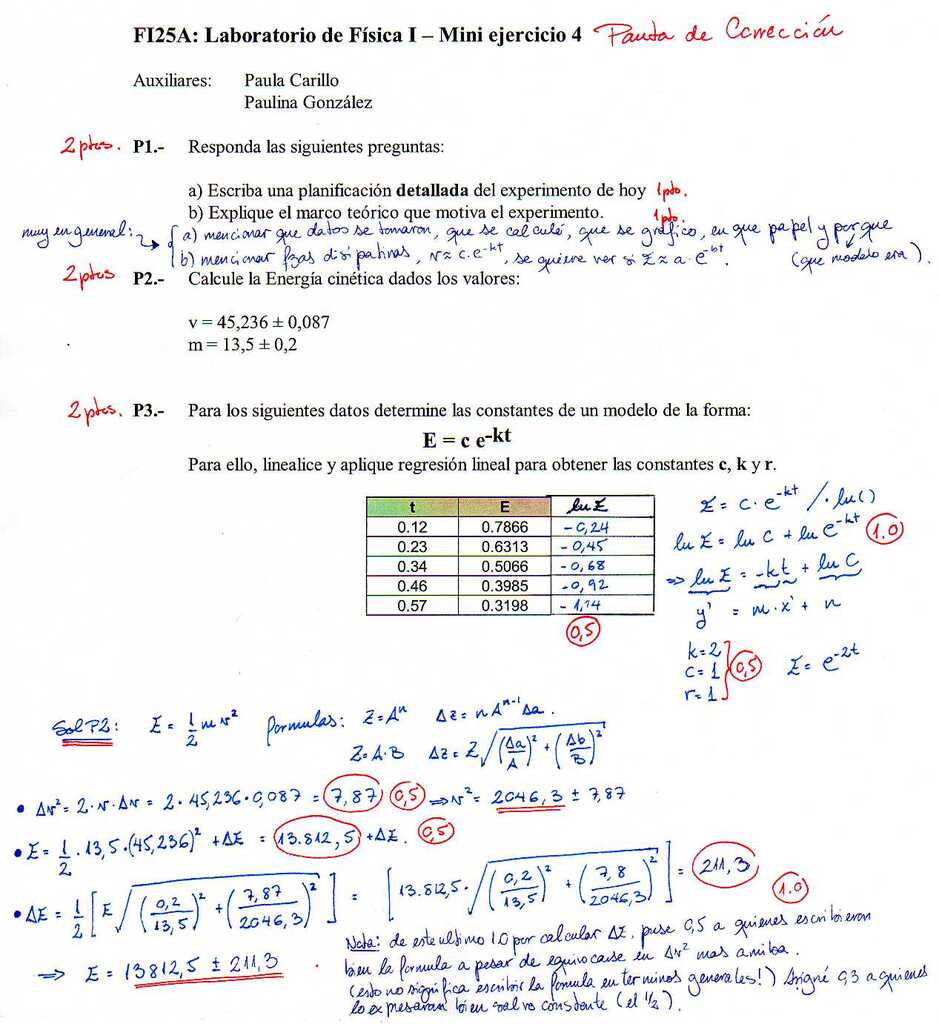 FI25A: Laboratorio de Física I – Mini ejercicio 4 Pauta de Corrección
Auxiliares: Paula Carillo
Paulina González
2 ptos. P1.- Responda las siguientes preguntas:
a) Escriba una planificación detallada del experimento de hoy 1 pto.
b) Explique el marco teórico que motiva el experimento. 1 pto.
muy en general: → a) mencionar que datos se tomaron, que se calculó, que se graficó, en que papel y porque
(que modelo era).
b) mencionar fzas disipativas, v ≈ c·e^-kt, se quiere ver si E ≈ a·e^-bt.
2 ptos P2.- Calcule la Energía cinética dados los valores:
v = 45,236 ± 0,087
m = 13,5 ± 0,2
2 ptos. P3.- Para los siguientes datos determine las constantes de un modelo de la forma:
E = c e^-kt
Para ello, linealice y aplique regresión lineal para obtener las constantes c, k y r.
t E ln E
0.12 0.7866 -0,24
0.23 0.6313 -0,45
0.34 0.5066 -0,68
0.46 0.3985 -0,92
0.57 0.3198 -1,14
0,5
E = c·e^-kt /·ln()
ln E = ln C + ln e^-kt 1.0
⇒ ln E = -kt + ln C
y' = m·x' + n
k=2
c=1 0,5 E = e^-2t
r=1
Sol P2: E = 1/2 m v² formulas: Z=A^n Δz = n A^n-1 Δa.
Z=A·B Δz = Z √((Δa/A)² + (Δb/B)²)
• Δv² = 2·v·Δv = 2·45,236·0,087 = 7,87 0,5 ⇒ v² = 2046,3 ± 7,87
• E = 1/2 · 13,5·(45,236)² + ΔE = 13.812,5 + ΔE. 0,5
• ΔE = 1/2 [E √((0,2/13,5)² + (7,87/2046,3)²)] = [13.812,5·√((0,2/13,5)² + (7,8/2046,3)²)] = 211,3
1.0
⇒ E = 13812,5 ± 211,3.
Nota: de este ultimo 1.0 por calcular ΔE, puse 0,5 a quienes escribieron
bien la formula a pesar de equivocarse en Δv² mas arriba.
(esto no significa escribir la formula en terminos generales!) Asigné 0,3 a quienes
lo expresaron bien salvo constante (el 1/2).